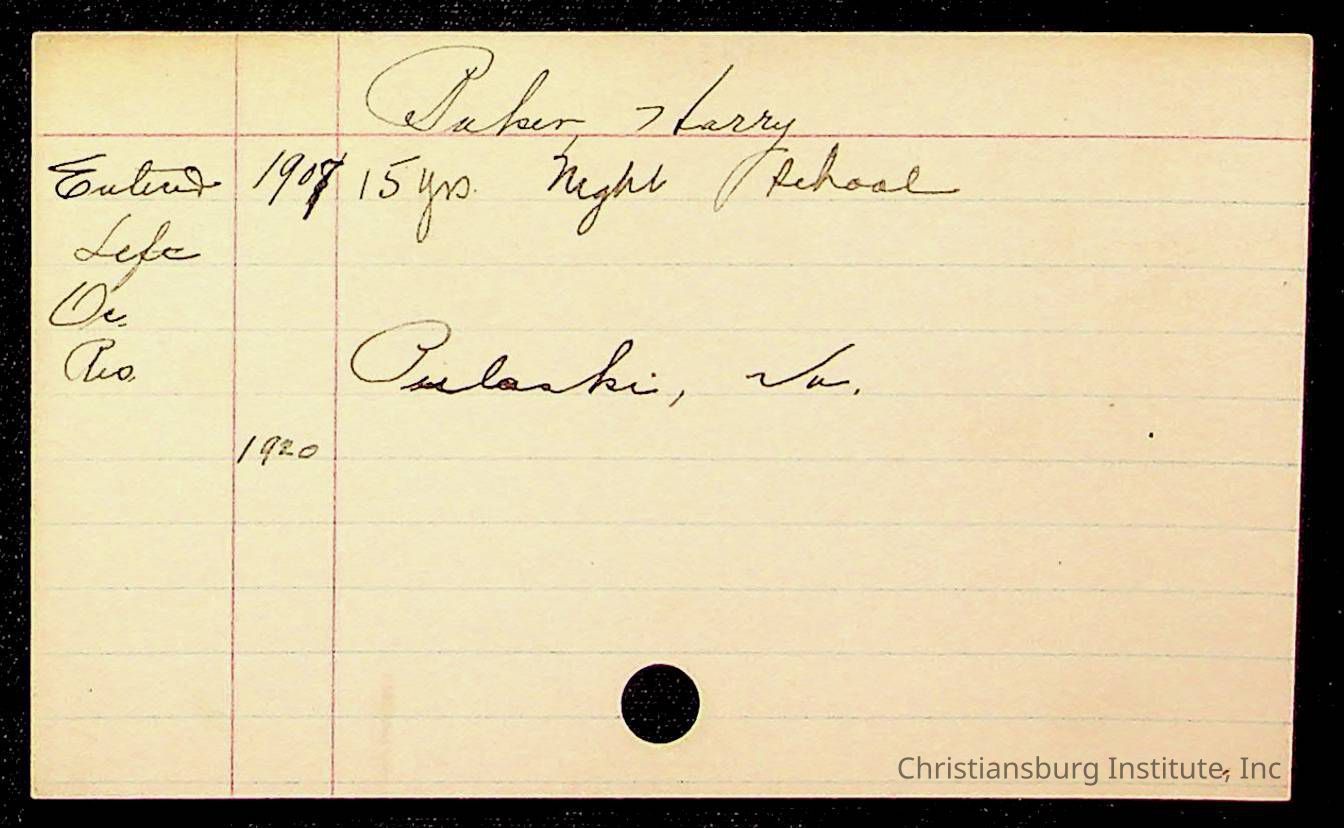 Baker, Harry
Entered 1907 15 yrs. Night School
Left
Oc.
Res. Pulaski, Va.
1920
Christiansburg Institute, Inc